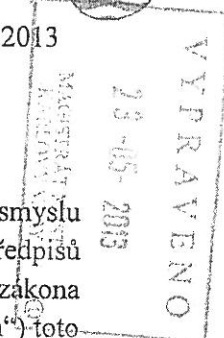 2013
smyslu
předpisů
zákona
“) toto
VYPRAVENO
23 -05- 2013
MAGISTRÁT